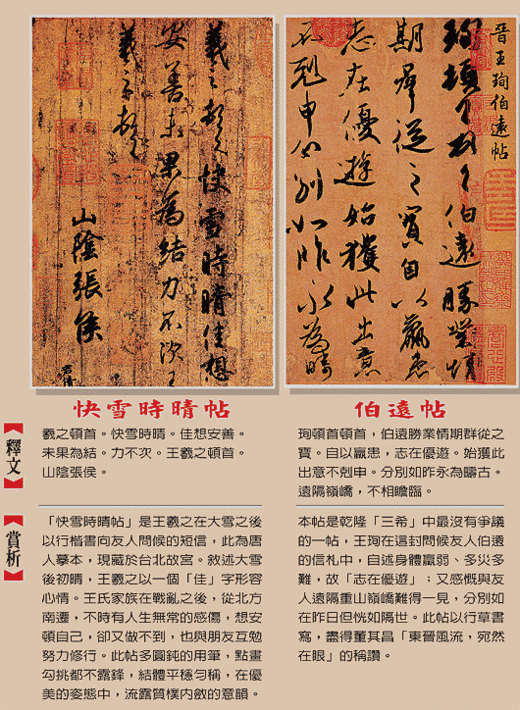 羲之頓首快雪時晴佳想
安善未果為結力不次王
羲之頓首
山陰張侯
晉王珣伯遠帖
珣頓首頓首伯遠勝業情
期群從之寶自以羸患
志在優遊始獲此出意
不剋申分別如昨永為疇
快雪時晴帖
伯遠帖
【釋文】
羲之頓首。快雪時晴。佳想安善。
未果為結。力不次。王羲之頓首。
山陰張侯。
珣頓首頓首，伯遠勝業情期群從之
寶。自以羸患，志在優遊。始獲此
出意不剋申。分別如昨永為疇古。
遠隔嶺嶠，不相瞻臨。
【賞析】
「快雪時晴帖」是王羲之在大雪之後
以行楷書向友人問候的短信，此為唐
人摹本，現藏於台北故宮。敘述大雪
後初晴，王羲之以一個「佳」字形容
心情。王氏家族在戰亂之後，從北方
南遷，不時有人生無常的感傷，想安
頓自己，卻又做不到，也與朋友互勉
努力修行。此帖多圓鈍的用筆，點畫
勾挑都不露鋒，結體平穩勻稱，在優
美的姿態中，流露質樸內斂的意韻。
本帖是乾隆「三希」中最沒有爭議
的一帖，王珣在這封問候友人伯遠
的信札中，自述身體羸弱、多災多
難，故「志在優遊」；又感慨與友
人遠隔重山嶺嶠難得一見，分別如
在昨日但恍如隔世。此帖以行草書
寫，盡得董其昌「東晉風流，宛然
在眼」的稱讚。